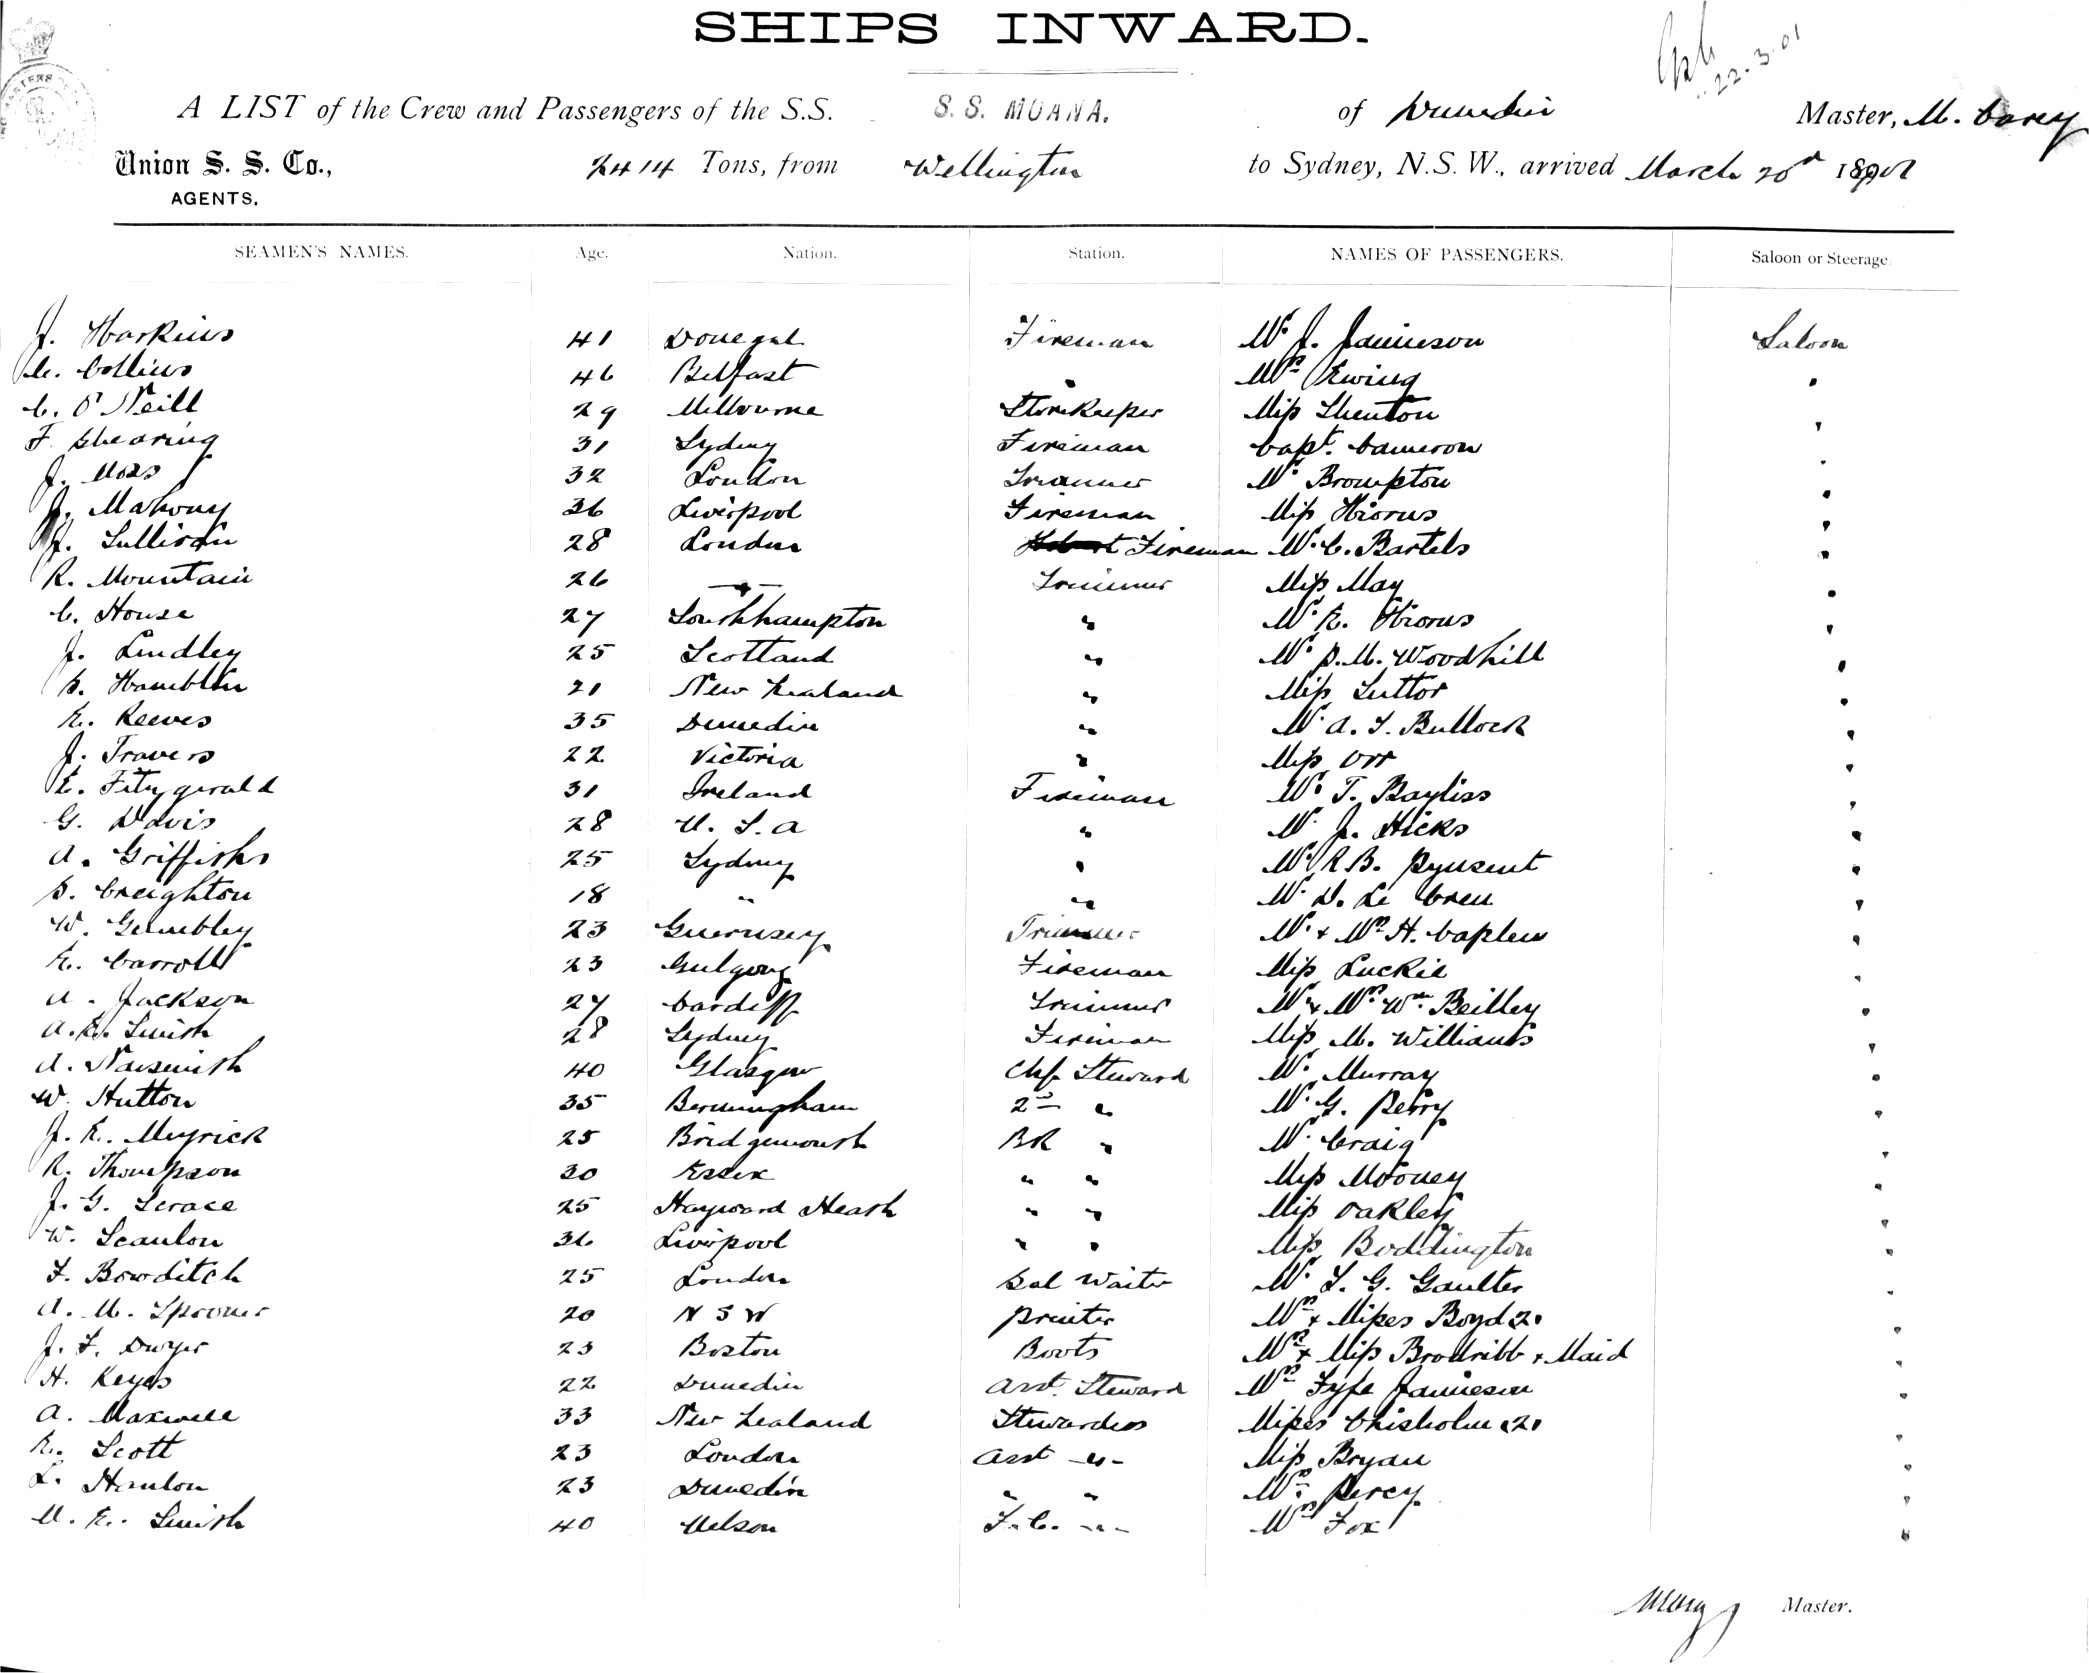 SHIPS INWARD.
22.3.01
A LIST of the Crew and Passengers of the S.S. S. S. MOANA. of Dunedin Master, M. Carey
Union S. S. Co., 2414 Tons, from Wellington to Sydney, N.S.W., arrived March 20th 1901
AGENTS.
SEAMEN'S NAMES. Age. Nation. Station. NAMES OF PASSENGERS. Saloon or Steerage.
J. Harkins 41 Donegal Fireman Mr J. Jamieson Saloon
Collins 46 Belfast " Mrs Ewing "
C. O'Neill 29 Melbourne Storekeeper Miss Shenton "
F. Shearing 31 Sydney Fireman Capt. Cameron "
J. Moss 32 London Trimmer Mr Brompton "
J. Mahony 36 Liverpool Fireman Miss Hiorns "
J. Sullivan 28 London Fireman Mr C. Bartels "
R. Mountain 26 " Trimmer Miss May "
C. House 27 Southhampton " Mr E. Hiorns "
J. Lindley 25 Scotland " Mr P. M. Woodhill "
P. Hamblin 21 New Zealand " Miss Suttor "
E. Reeves 35 Dunedin " Mr A. S. Bullock "
J. Travers 22 Victoria " Miss Orr "
E. Fitzgerald 31 Ireland Fireman Mr T. Bayliss "
G. Davis 28 U. S. A " Mr J. Hicks "
A. Griffiths 25 Sydney " Mr R. B. Pynsent "
P. Creighton 18 " " Mr D. Le Cren "
W. Gumbley 23 Guernsey Trimmer Mr & Mrs H. Caplen "
E. Carroll 23 Gulgong Fireman Miss Luckie "
A. Jackson 27 Cardiff Trimmer Mr & Mrs Wm Beilley "
A. E. Smith 28 Sydney Fireman Miss M. Williams "
A. Naismith 40 Glasgow Chf Steward Mr Murray "
W. Hutton 35 Bermingham 2nd " Mr G. Perry "
J. E. Meyrick 25 Bridgemouth BR " Mr Craig "
R. Thompson 30 Essex " " Miss Mooney "
J. G. Scrace 25 Hayward Heath " " Miss Oakley "
W. Scanlon 36 Liverpool " " Miss Boddington "
F. Bowditch 25 London Sal Waiter Mr S. G. Gaulter "
A. M. Spooner 20 N S W Printer Mrs & Misses Boyd 2. "
J. F. Dwyer 23 Boston Boots Mrs & Miss Brodribb & Maid "
H. Keyes 22 Dunedin Asst. Steward Mrs Fyfe Jamieson "
A. Maxwell 33 New Zealand Stewardess Misses Chisholm (2) "
E. Scott 23 London Asst -"- Miss Bryan "
L. Hanlon 23 Dunedin " " Mrs Percy "
M. E. Smith 40 Nelson F. C. -"- Mrs Fox "
Master.